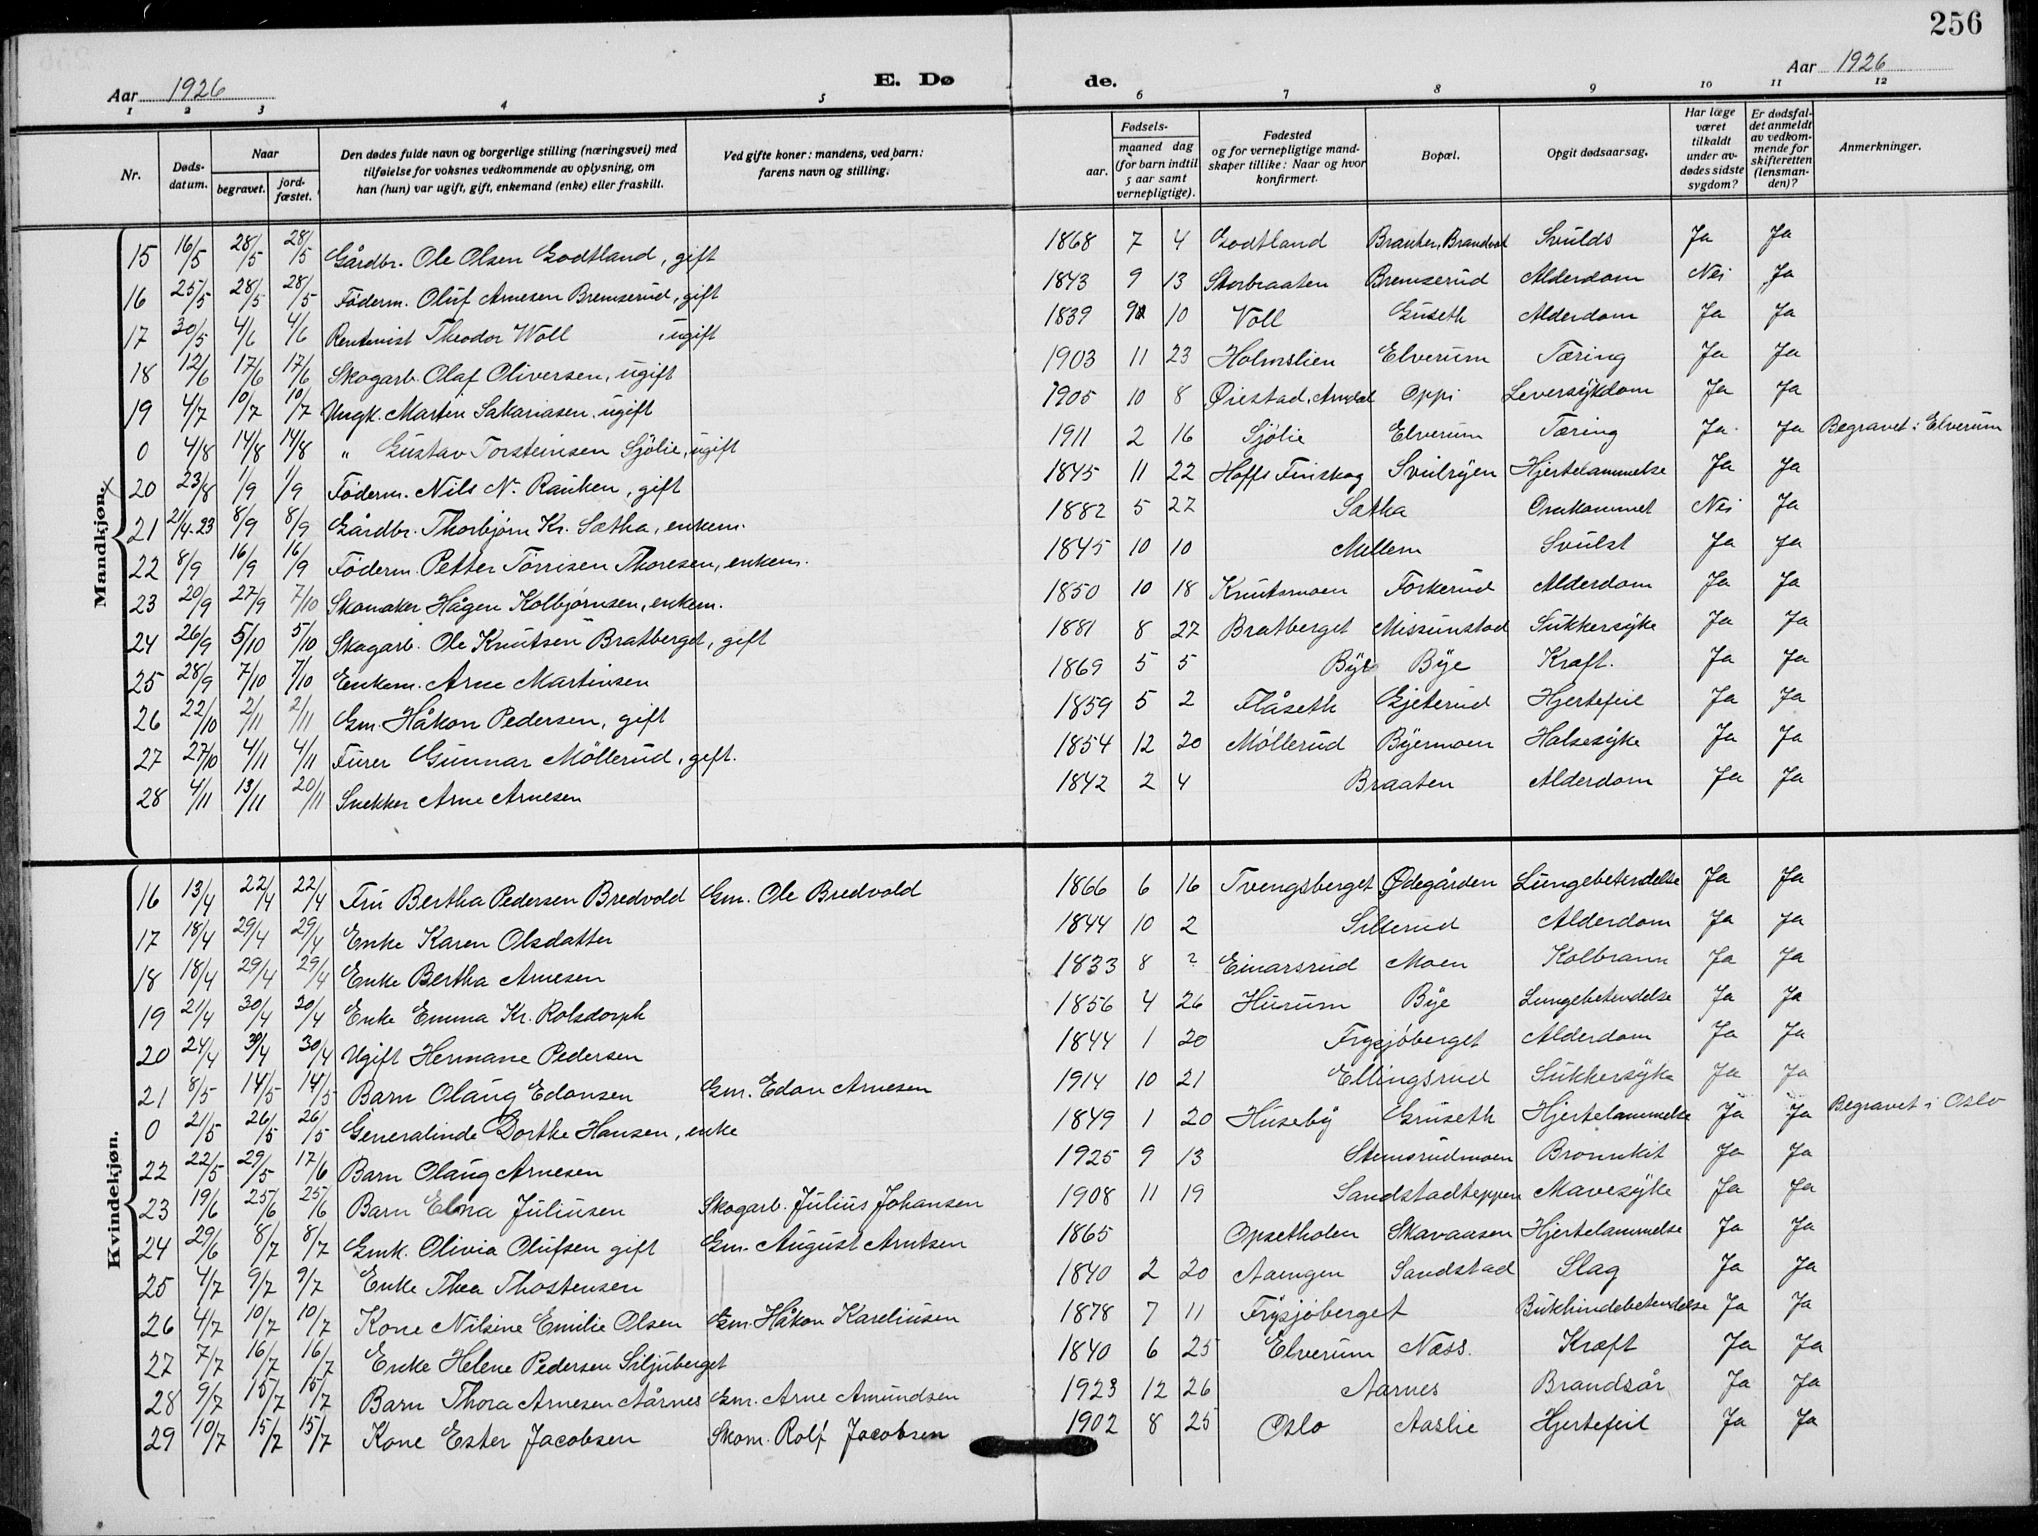 256
Aar 1926 E. Dø de. Aar 1926
1 2 3 4 5 6 7 8 9 10 11 12
Nr. Døds-datum. Naar begravet. jord-fæstet. Den dødes fulde navn og borgerlige stilling (næringsvei) med tilføielse for voksnes vedkommende av oplysning, om han (hun) var ugift, gift, enkemand (enke) eller fraskilt. Ved gifte koner: mandens, ved barn: farens navn og stilling. Fødsels- aar. maaned dag (for barn indtil 5 aar samt vernepligtige). Fødested og for vernepligtige mand-skaper tillike: Naar og hvor konfirmert. Bopæl. Opgit dødsaarsag. Har læge været tilkaldt under av-dødes sidste sygdom? Er dødsfal-det anmeldt av vedkom-mende for skifteretten (lensman-den)? Anmerkninger.
Mandkjøn.
15 16/5 28/5 28/5 Gårdbr. Ole Olsen Godtland, gift 1868 7 4 Godtland Svulds Ja Ja
16 25/5 28/5 28/5 Föderm. Oluf Arnesen Bremserud, gift 1843 9 13 Storbraaten Bremserud Alderdom Nei Ja
17 30/5 4/6 4/6 Rentenist Theodor Woll, ugift 1839 9 10 Voll Guseth Alderdom Ja Ja
18 12/6 17/6 17/6 Skogarb. Olaf Oliversen, ugift 1903 11 23 Holmslien Elverum Tæring Ja Ja
19 4/7 10/7 10/7 Ungk. Martin Sakariasen, ugift 1905 10 8 Øiestad, Arndal Oppi Leversykdom Ja Ja
0 4/8 14/8 14/8 " Gustav Torsteinsen Sjölie, ugift 1911 2 16 Sjölie Elverum Tæring Ja Ja Begravet i Elverum
x 20 23/8 1/9 1/9 Föderm. Nils N. Rauken, gift 1845 11 22 Hoffs Finskog Svulryen Hjertelammelse Ja Ja
21 21/4-23 8/9 8/9 Gårdbr. Thorbjørn Kr. Sætha, enkem. 1882 5 27 Sætha Omkommet Nei Ja
22 8/9 16/9 16/9 Föderm. Petter Torrisen Thoresen, enkem. 1845 10 10 Mellem Svulst Ja Ja
23 20/9 27/9 7/10 Skomaker Hågen Kolbjørnsen, enkem. 1850 10 18 Knutsmoen Forkerud Alderdom Ja Ja
24 26/9 5/10 5/10 Skogarb. Ole Knutsen Bratberget, gift 1881 8 27 Bratberget Missunstad Sukkersyke Ja Ja
25 28/9 7/10 7/10 Enkem. Arne Martinsen 1869 5 5 Bye Bye Kræft. Ja Ja
26 22/10 2/11 2/11 Gm. Håkon Pedersen, gift 1859 5 2 Flåseth Gjeterud Hjertefeil Ja Ja
27 27/10 4/11 4/11 Furer Gunnar Möllerud, gift. 1854 12 20 Möllerud Byermoen Halsesyke Ja Ja
28 4/11 13/11 20/11 Snekker Arne Arnesen 1842 2 4 Braaten Alderdom Ja Ja
Kvindekjøn.
16 13/4 22/4 22/4 Fru Bertha Pedersen Bredvold Gm. Ole Bredvold 1866 6 16 Tvengsberget Ødegården Lungebetendelse Ja Ja
17 18/4 29/4 29/4 Enke Karen Olsdatter 1844 10 2 Sillerud Alderdom Ja Ja
18 18/4 29/4 29/4 Enke Bertha Arnesen 1833 8 ? Einarsrud Moen Kolbrann Ja Ja
19 21/4 30/4 30/4 Enke Emma Kr. Rolsdorph 1856 4 26 Hurum Bye Lungebetendelse Ja Ja
20 24/4 30/4 30/4 Ugift Hermane Pedersen 1844 1 20 Frysjöberget Alderdom Ja Ja
21 8/5 14/5 14/5 Barn Olaug Edansen Gm. Edan Arnesen 1914 10 21 Ellingsrud Sukkersyke Ja Ja
0 21/5 26/5 26/5 Generalinde Dorthe Hansen, enke 1849 1 20 Huseby Gruseth Hjertelammelse Ja Ja Begravet i Oslo
22 22/5 29/5 17/6 Barn Olaug Arnesen 1925 9 13 Stemsrudmoen Bronnkit Ja Ja
23 19/6 25/6 25/6 Barn Elna Juliusen Skogarb. Julius Johansen 1908 11 19 Sandstadteppen Mavesyke Ja Ja
24 29/6 8/7 8/7 Gmk. Olivia Olufsen gift Gm. August Arntsen 1865 Opsetholen Skavaasen Hjertelammelse Ja Ja
25 4/7 9/7 9/7 Enke Thea Thostensen 1840 2 20 Aaengen Sandstad Slag Ja Ja
26 4/7 10/7 10/7 Kone Nilsine Emilie Olsen Gm. Håkon Kareliusen 1878 7 11 Frysjöberget Bukhindebetendelse Ja Ja
27 7/7 16/7 16/7 Enke Helene Pedersen Siljuberget 1840 6 25 Elverum Næss. Kræft Ja Ja
28 9/7 15/7 15/7 Barn Thora Arnesen Aårnes Gm. Arne Amundsen 1923 12 26 Aarnes Brandsår Ja Ja
29 10/7 15/7 15/7 Kone Ester Jacobsen Skom. Rolf Jacobsen 1902 8 25 Oslo Aaslie Hjertefeil Ja Ja